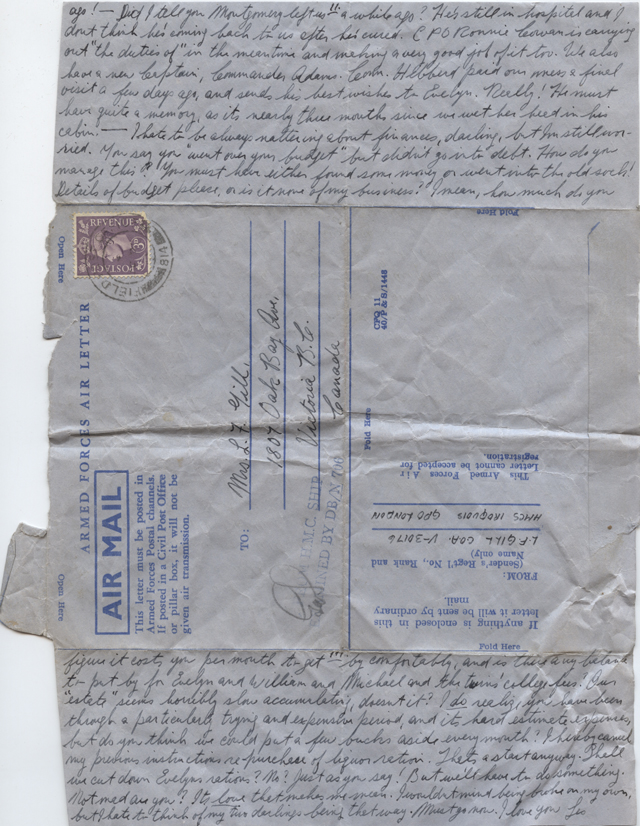 ago! — Did I tell you Montgomery left us a while ago? He's still in hospital and I
don't think he's coming back to us after he's cured. CPO Ronnie Cowan is carrying
out "the duties of" in the meantime and making a very good job of it too. We also
have a new Captain, Commander Adams. Cmdr. Hibberd paid our mess a final
visit a few days ago, and sends his best wishes to Evelyn. Really! He must
have quite a memory, as it's nearly three months since we wet her head in his
cabin. — I hate to be always nattering about finances, darling, but I'm still wor-
ried. You say you "went over your budget" but didn't go into debt. How do you
manage this? You must have either found some money or went into the old sock!
Details of budget please, or is it none of my business? I mean, how much do you
Open Here
POSTAGE
REVENUE
3D
FIELD
ARMED FORCES AIR LETTER
AIR MAIL
This letter must be posted in
Armed Forces Postal channels.
If posted in a Civil Post Office
or pillar box, it will not be
given air transmission.
Open Here
TO:
Mrs. L. F. Gill,
1807 Oak Bay Ave,
Victoria B.C.
Canada
H.M.C. SHIP
EXAMINED BY DB/N 700
Fold Here
CPO 11
40/P & S/1448
Fold Here
This Armed Forces Air
Letter cannot be accepted for
registration.
HMCS IROQUOIS GPO LONDON
L.F. GILL V-30176
(Sender's Reg'l No., Rank and
Name only)
FROM:
If anything is enclosed in this
letter it will be sent by ordinary
mail.
Fold Here
figure it costs you per month to get by comfortably, and is there any balance
to put by for Evelyn and William and Michael and the twins' college fees! Our
"estate" seems horribly slow accumulating, doesn't it? I do realize you have been
through a particularly trying and expensive period, and it's hard estimate expenses,
but do you think we could put a few bucks aside every month? I hereby cancel
my previous instructions re purchase of liquor ration. That's a start anyway. Shall
we cut down Evelyn's rations? No? Just as you say! But we'll have to do something.
Not mad are you? It's love that makes me mean. I wouldn't mind being broke on my own,
but I hate to think of my two darlings being that way. Must go now. I love you Les